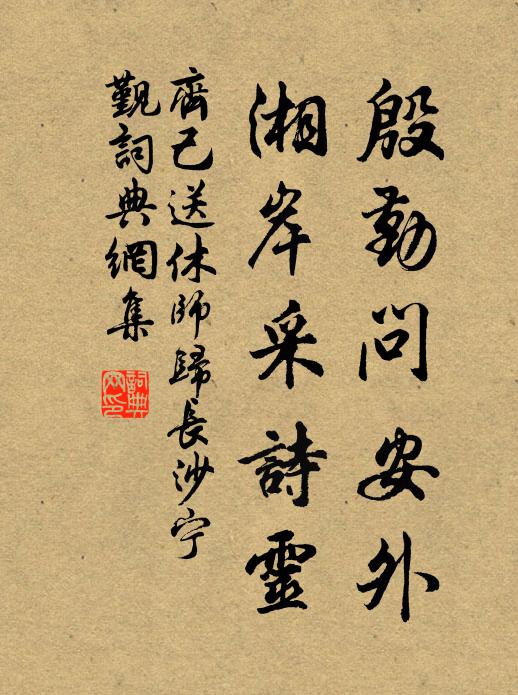 殷勤問安外
湘岸采詩靈
齊己送休師歸長沙宁
覲詞典網集
詞典網印